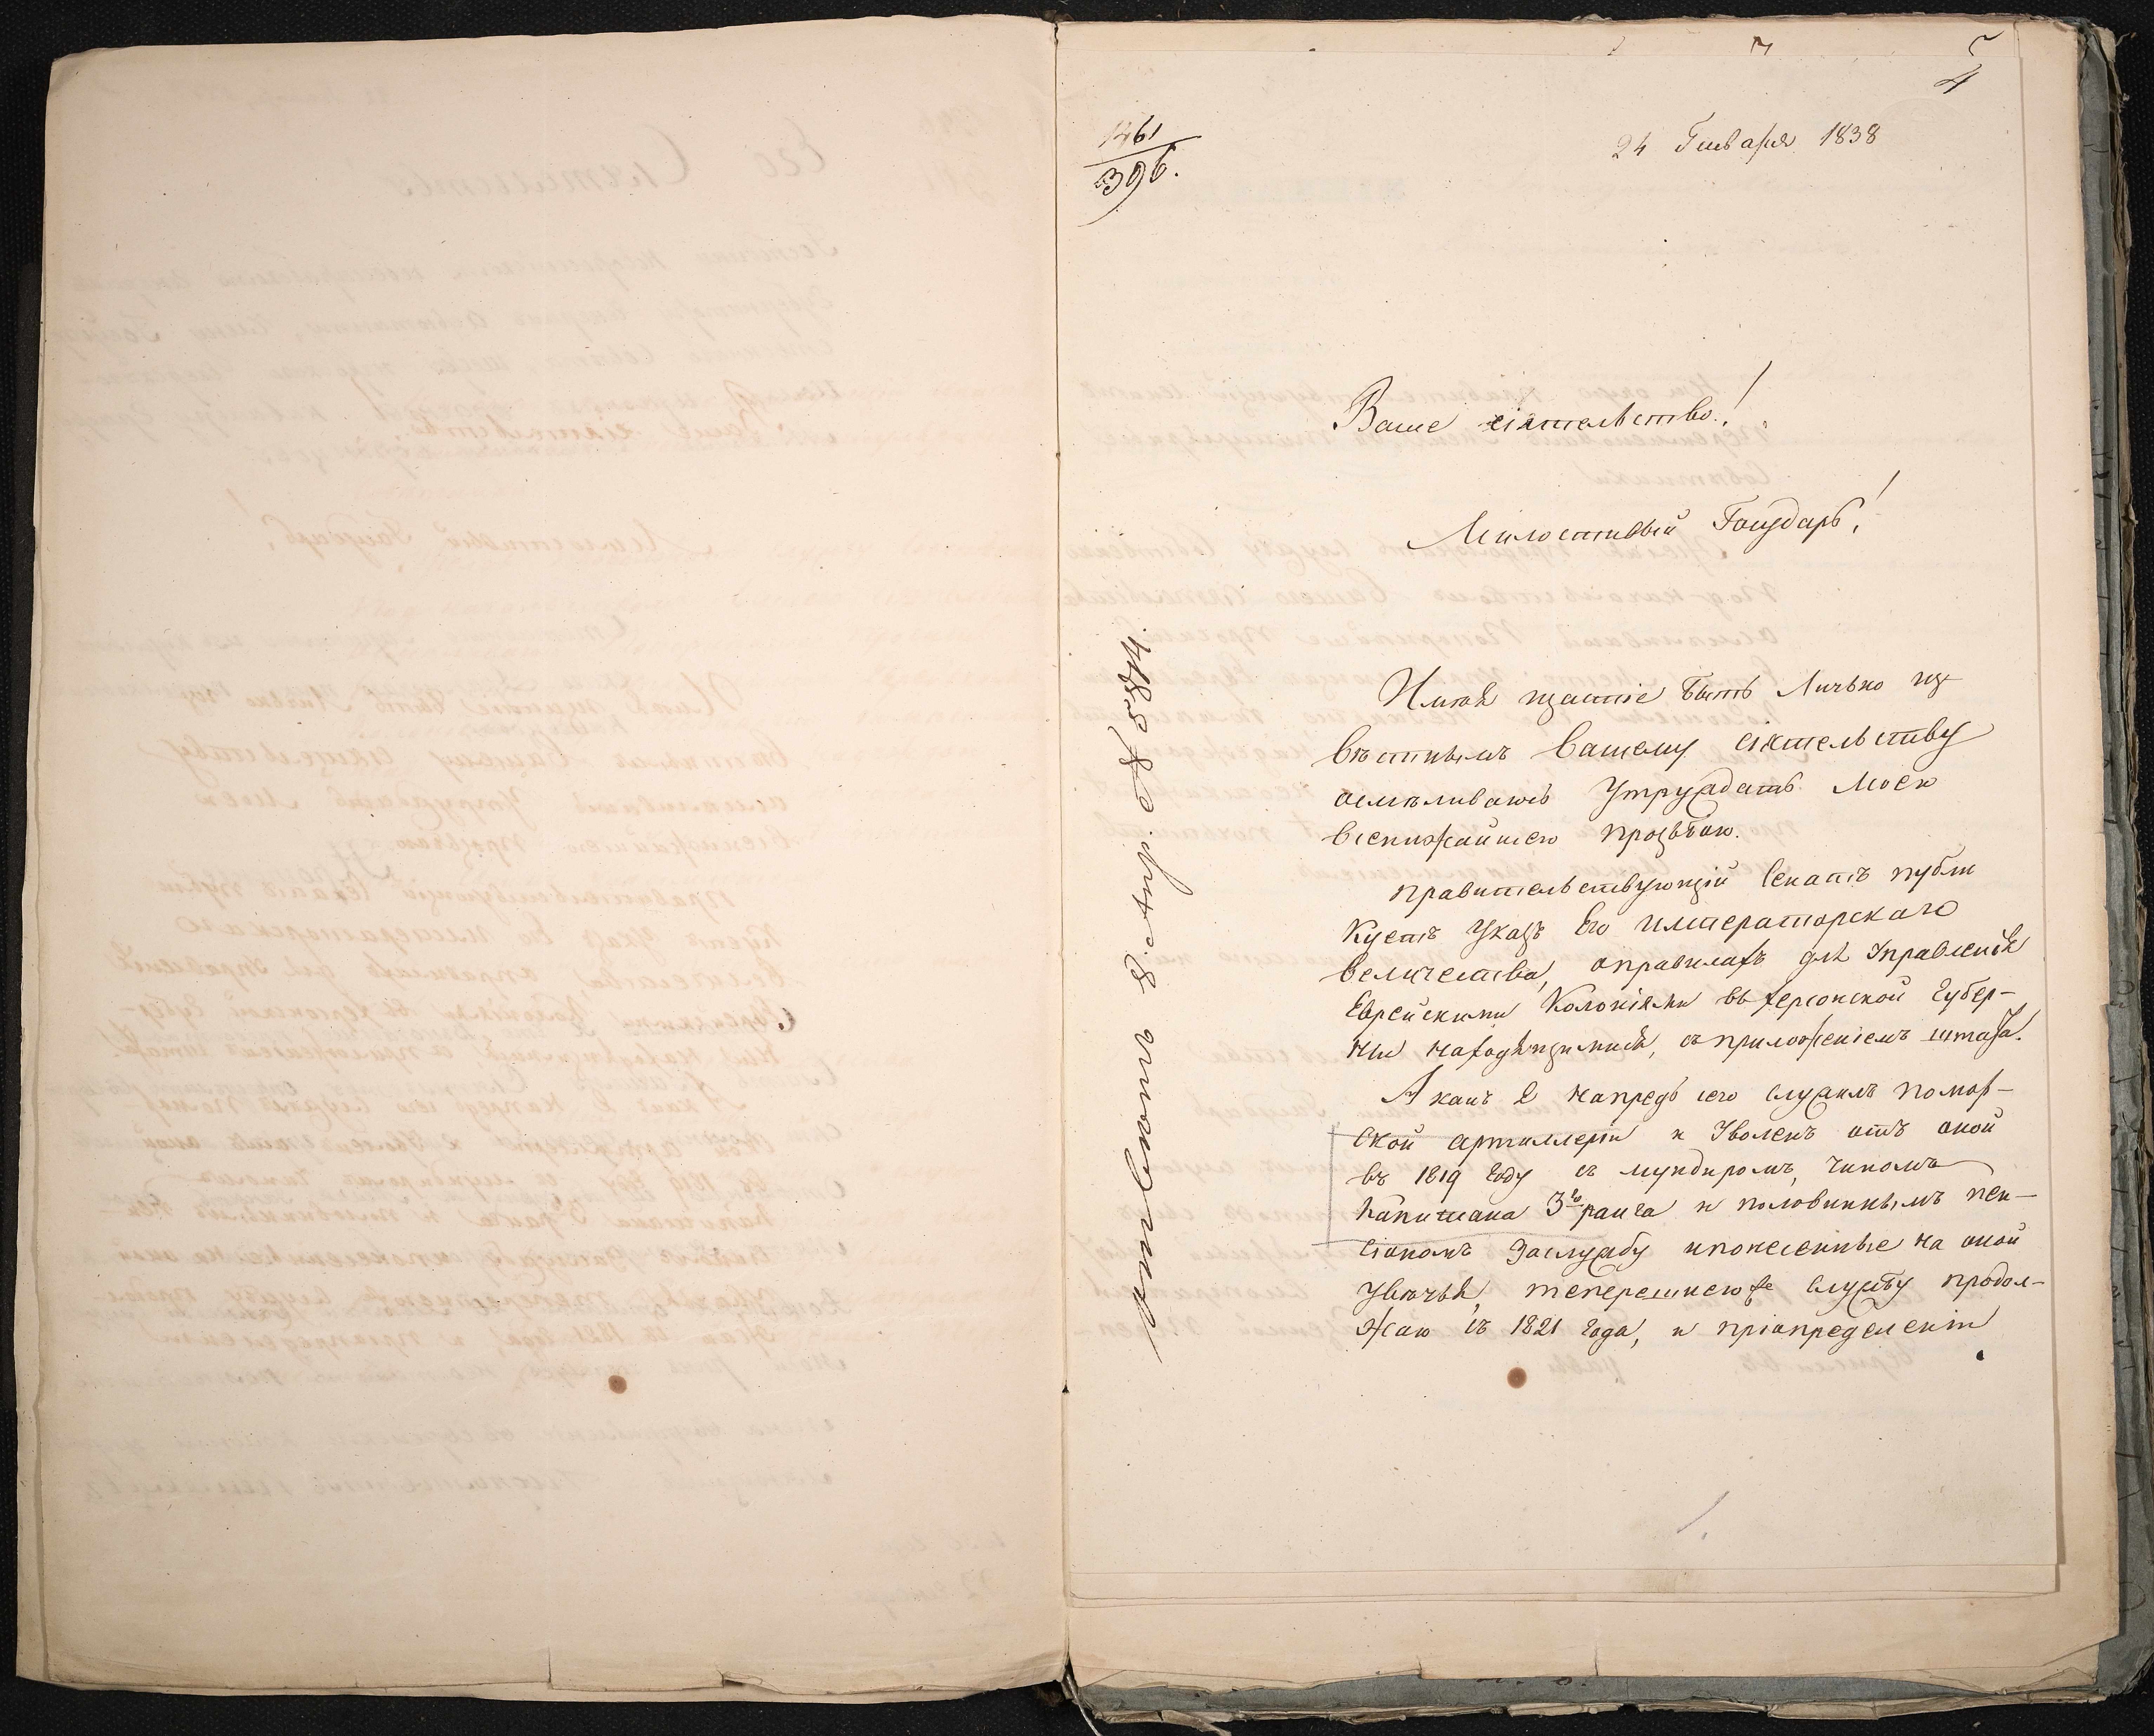 4
146/396.
24 Генваря 1838
Ваше сіятельство!
Милостивый Государь!
Имѣя щастіе быть Личьно из
вѣстнымъ Вашему сіятельству
осмѣливаюсь Утруждать Моею
всенижайшею прозьбою.
правительствующій Сенатъ публи
куетъ Указъ Его императорского
величества, оправилахъ для Управленія
Еврейскими Колоніями въ херсонской Губер-
ніи находящимися, съ приложеніемъ штата.
А какъ я напредъ сего служилъ помор-
ской артиллеріи и Уволенъ отъ оной
въ 1819 Году съ мундиромъ, чиномъ
капитана 3го ранга и половиннымъ пен-
сіономъ Заслужбу ипонесенные на оной
Увѣчья, теперешнеюже службу продол-
жаю съ 1821 Года, и пріопределеніи
1.
отвѣтъ 8. Апр. № 5884.